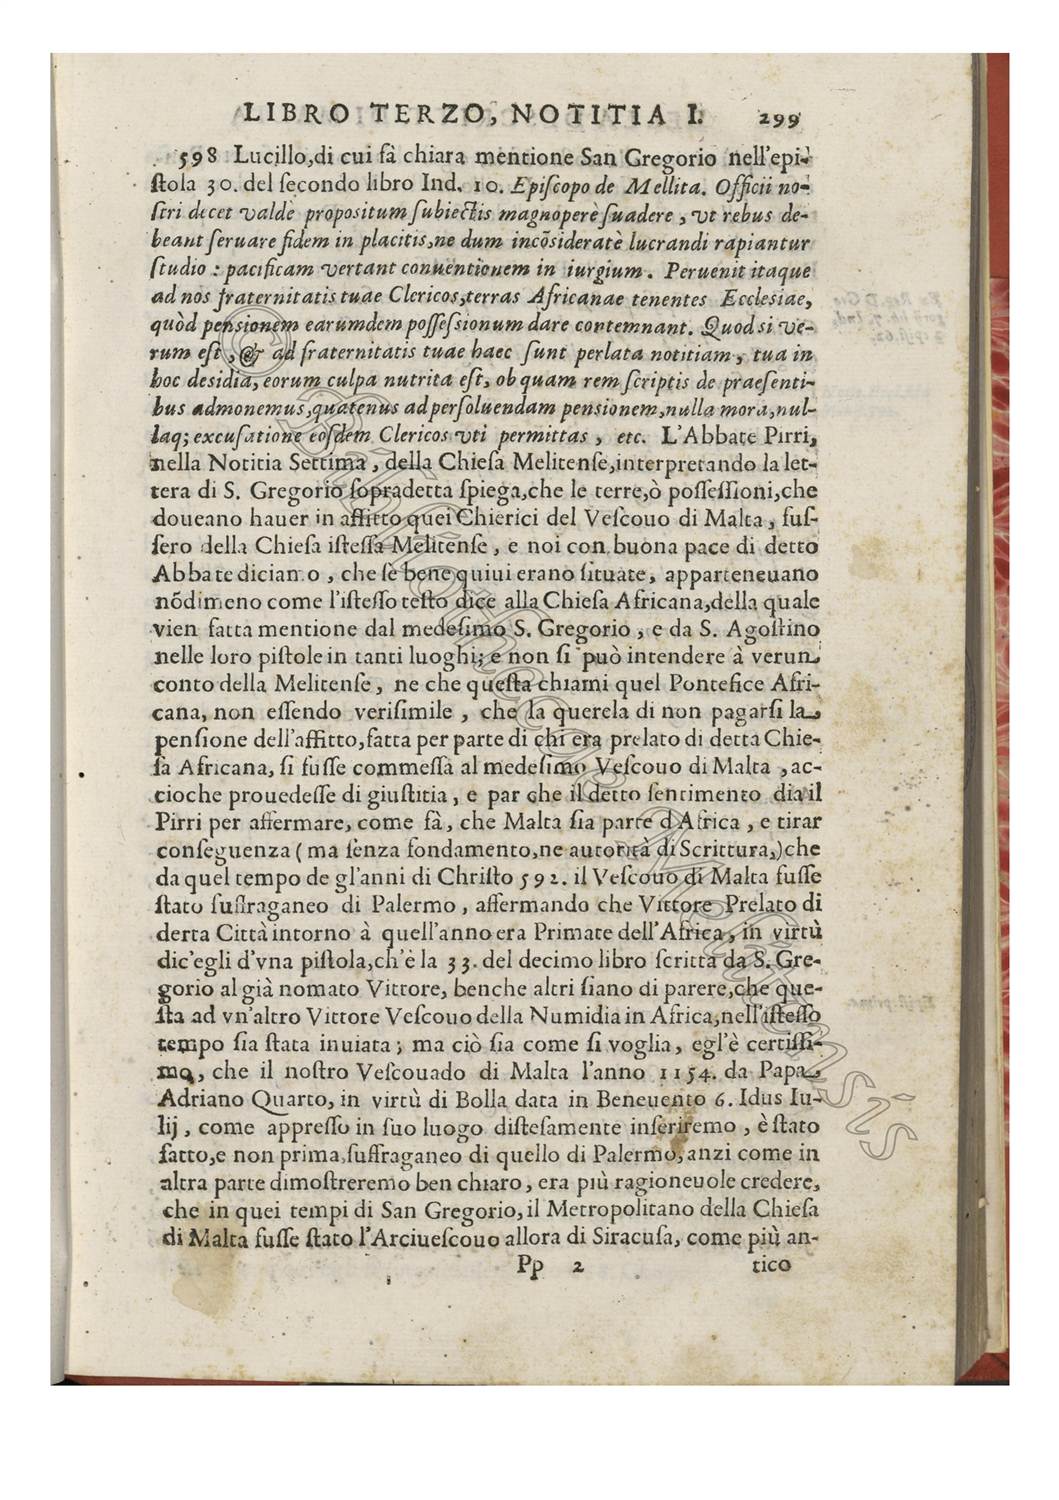 LIBRO TERZO, NOTITIA I. 299
598 Lucillo, di cui fà chiara mentione San Gregorio nell'epi-
ſtola 30. del ſecondo libro Ind. 10. Epiſcopo de Mellita. Officii no-
ſtri decet valdè propoſitum ſubiectis magnoperè ſuadere, vt rebus de-
beant ſeruare fidem in placitis, ne dum incõſideratè lucrandi rapiantur
ſtudio: pacificam vertant conuentionem in iurgium. Peruenit itaque
ad nos fraternitatis tuae Clericos, terras Africanae tenentes Eccleſiae,
quòd penſionem earumdem poſſeſsionum dare contemnant. Quod si ve-
rum eſt, & ad fraternitatis tuae haec ſunt perlata notitiam, tua in
hoc deſidia, eorum culpa nutrita eſt, ob quam rem ſcriptis de praeſenti-
bus admonemus, quatenus ad perſoluendam penſionem, nulla mora, nul-
laq; excuſatione eoſdem Clericos vti permittas, etc. L'Abbate Pirri,
nella Notitia Settima, della Chieſa Melitenſe, interpretando la let-
tera di S. Gregorio ſopradetta ſpiega, che le terre, ò poſſeſſioni, che
doueano hauer in affitto quei Chierici del Veſcouo di Malta, fuſ-
ſero della Chieſa iſteſſa Melitenſe, e noi con buona pace di detto
Abbate diciamo, che ſe bene quiui erano ſituate, apparteneuano
nõdimeno come l'iſteſſo teſto dice alla Chieſa Africana, della quale
vien fatta mentione dal medeſimo S. Gregorio, e da S. Agoſtino
nelle loro piſtole in tanti luoghi; e non ſi può intendere à verun
conto della Melitenſe, ne che queſta chiami quel Pontefice Afri-
cana, non eſſendo veriſimile, che la querela di non pagarſi la
penſione dell'affitto, fatta per parte di chi era prelato di detta Chie-
ſa Africana, ſi fuſſe commeſſa al medeſimo Veſcouo di Malta, ac-
cioche prouedeſſe di giuſtitia, e par che il detto ſentimento dia il
Pirri per affermare, come fà, che Malta ſia parte d'Africa, e tirar
conſeguenza (ma ſenza fondamento, ne autorità di Scrittura,) che
da quel tempo de gl'anni di Chriſto 592. il Veſcouo di Malta fuſſe
ſtato ſuffraganeo di Palermo, affermando che Vittore Prelato di
detta Città intorno à quell'anno era Primate dell'Africa, in virtù
dic'egli d'vna piſtola, ch'è la 33. del decimo libro ſcritta da S. Gre-
gorio al già nomato Vittore, benche altri ſiano di parere, che que-
ſta ad vn'altro Vittore Veſcouo della Numidia in Africa, nell'iſteſſo
tempo ſia ſtata inuiata; ma ciò ſia come ſi voglia, egl'è certiſſi-
mo, che il noſtro Veſcouado di Malta l'anno 1154. da Papa
Adriano Quarto, in virtù di Bolla data in Beneuento 6. Idus Iu-
lij, come appreſſo in ſuo luogo diſteſamente inſeriremo, è ſtato
fatto, e non prima, ſuffraganeo di quello di Palermo, anzi come in
altra parte dimoſtreremo ben chiaro, era più ragioneuole credere,
che in quei tempi di San Gregorio, il Metropolitano della Chieſa
di Malta fuſſe ſtato l'Arciueſcouo allora di Siracuſa, come più an-
Pp 2 tico